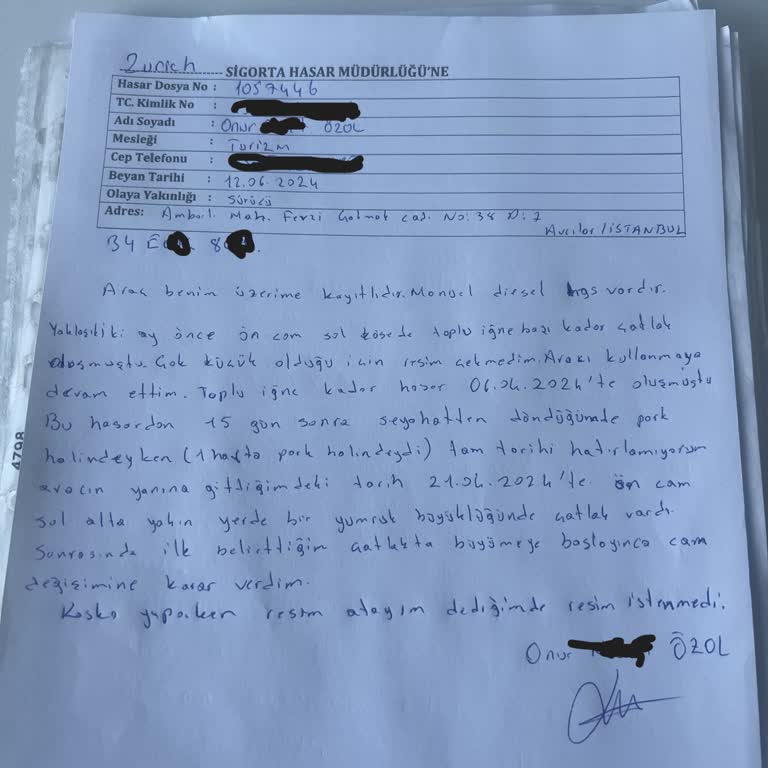 Zurich ........ SİGORTA HASAR MÜDÜRLÜĞÜ'NE
Hasar Dosya No : 1057446
TC. Kimlik No :
Adı Soyadı : Onur ÖZOL
Mesleği : Turizm
Cep Telefonu :
Beyan Tarihi : 12.06.2024
Olaya Yakınlığı : Sürücü
Adres: Ambarlı Mah. Fevzi Çakmak cad. No: 38 D: 2
Avcılar / İSTANBUL
34 E 8
Araç benim üzerime kayıtlıdır. Manuel diesel hgs vardır.
Yaklaşık iki ay önce ön cam sol köşede toplu iğne başı kadar çatlak
oluşmuştu. Çok küçük olduğu için resim çekmedim. Aracı kullanmaya
devam ettim. Toplu iğne kadar hasar 06.04.2024'te oluşmuştu
Bu hasardan 15 gün sonra seyahatten döndüğümde park
halindeyken (1 hafta park halindeydi) tam tarihi hatırlamıyorum
aracın yanına gittiğimdeki tarih 21.04.2024'te ön cam
sol alta yakın yerde bir yumruk büyüklüğünde çatlak vardı.
Sonrasında ilk belirttiğim çatlakta büyümeye başlayınca cam
değişimine karar verdim.
Kasko yaparken resim atayım dediğimde resim istenmedi.
Onur ÖZOL
4798